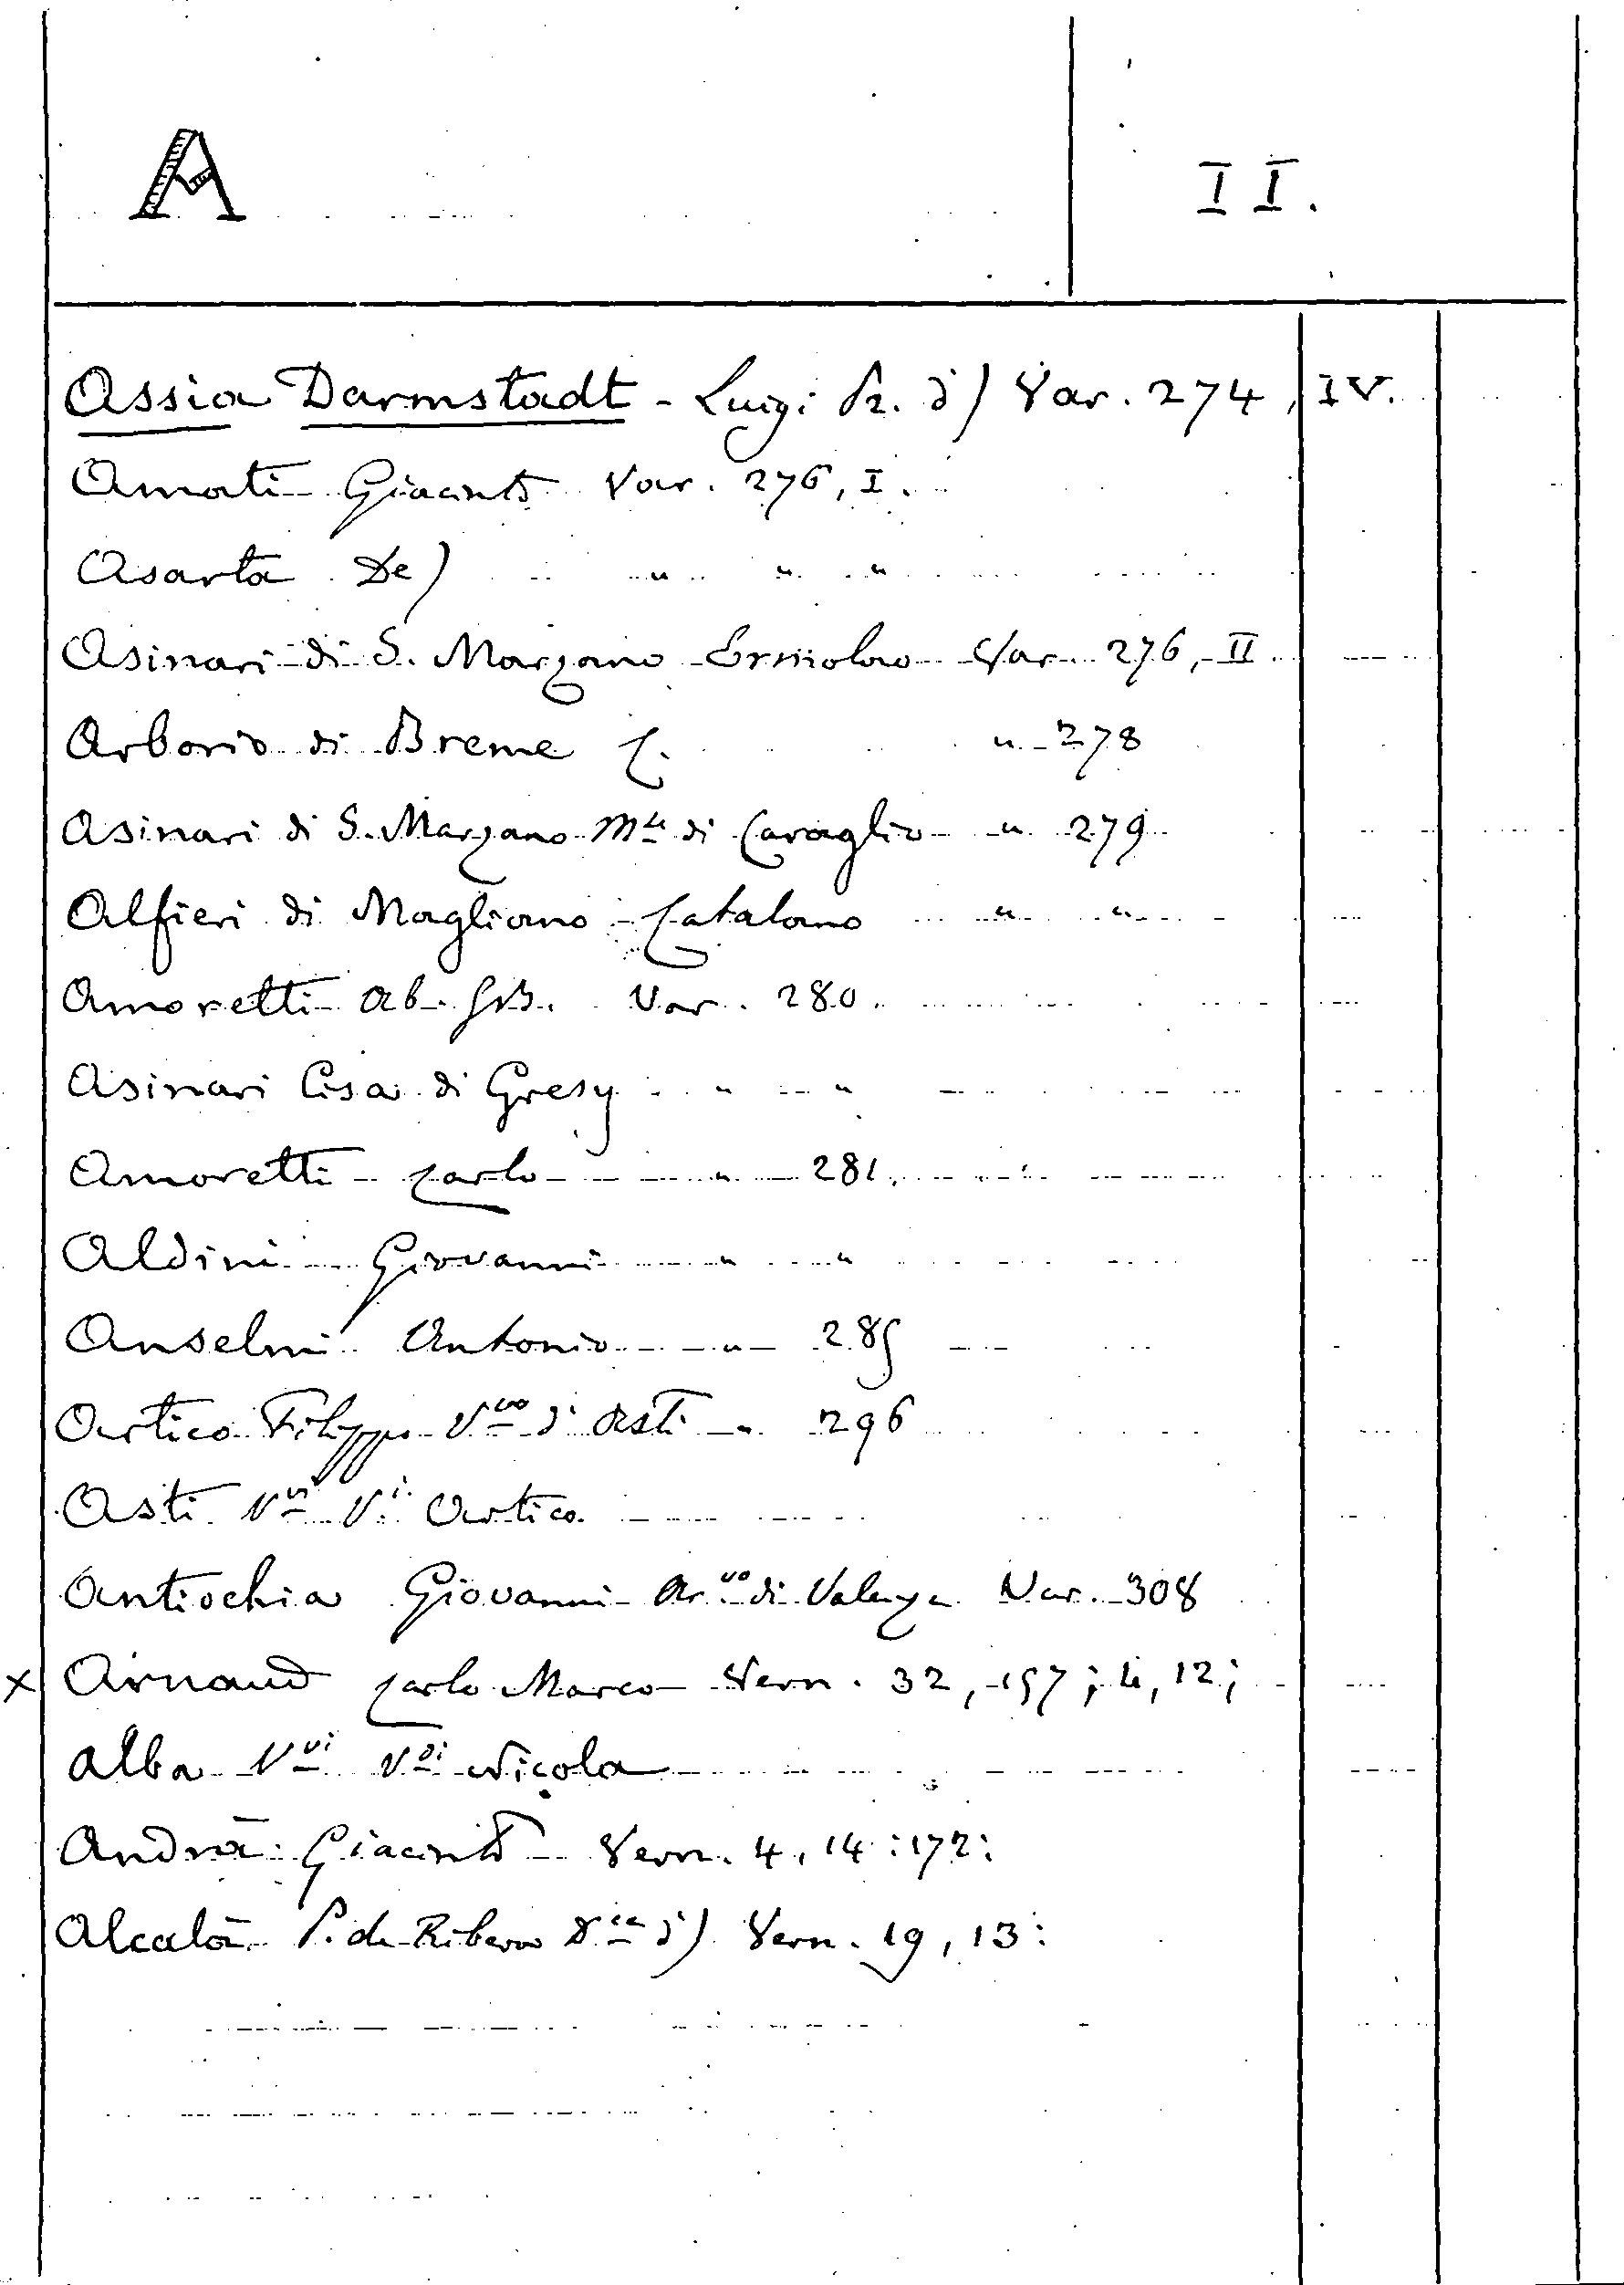 A
II.
Assia Darmstadt - Luigi Pr. d') Var. 274, IV.
Amati Giacinto Var. 276, I.
Asarta De) " " "
Asinari di S. Marzano Ermolao Var. 276, II.
Arborio di Breme L. " 278
Asinari di S. Marzano Mse di Caraglio " 279
Alfieri di Magliano Catalano " "
Amoretti Ab. GB. Var. 280.
Asinari Cisa di Gresy " "
Amoretti Carlo " 281.
Aldini Giovanni " "
Anselmi Antonio " 285
Artico Filippo Vvo d'Asti " 296
Asti Vvi Vi Artico
Antiochia Giovanni Ar.vo di Valenza Var. 308
x Arnaud Carlo Marco Vern. 32, 157; 4, 12;
Alba Vvi Vdi Nicola
Andrà Giacinto Vern. 4, 14: 172:
Alcalà P. de Ribera Dca d') Vern. 19, 13: